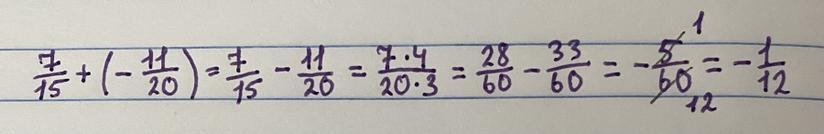 7/15 + (- 11/20) = 7/15 - 11/20 = 7·4/20·3 = 28/60 - 33/60 = - 5/60 1 12 = - 1/12